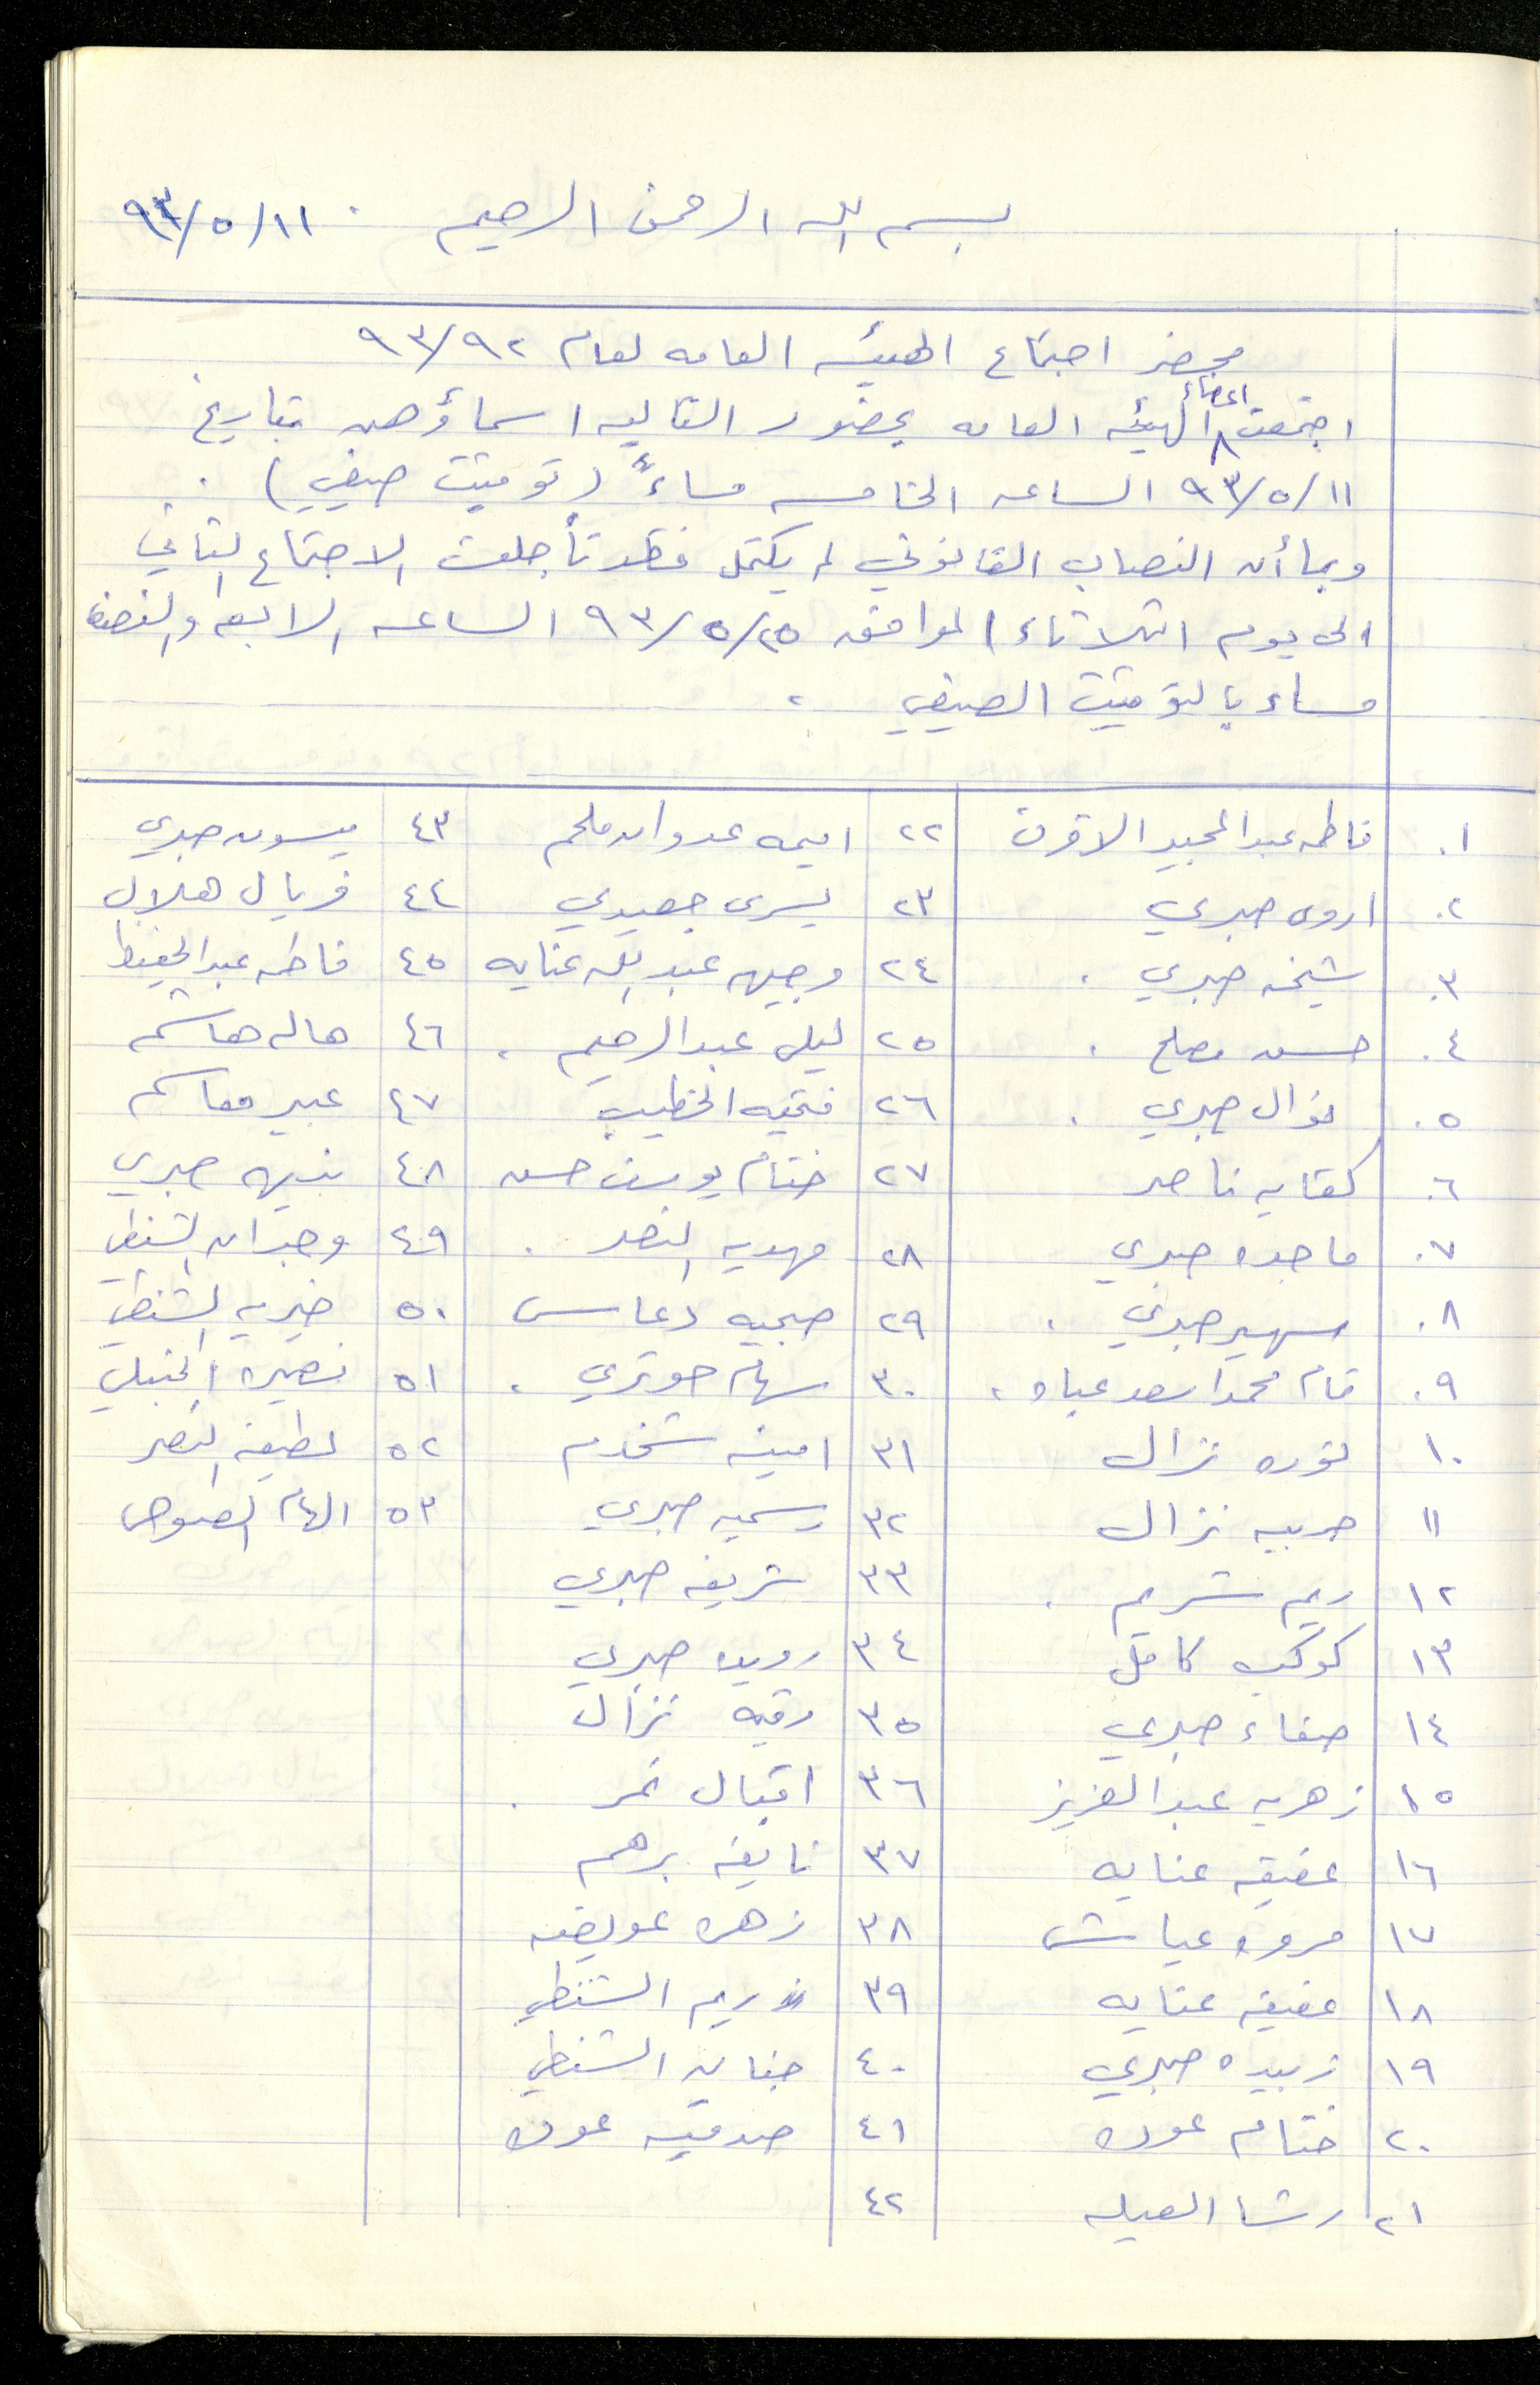 بسم الله الرحمن الرحيم . ٩٣/٥/١١
محضر اجتماع الهيئه العامه لعام ٩٣/٩٢
اجتمعت اعضاء الهيئه العامه بحضور التاليه اسماؤهن بتاريخ
٩٣/٥/١١ الساعه الخامسه مساءً (توقيت صيفي) .
وبما أن النصاب القانوني لم يكتمل فقد تأجلت الاجتماع الثاني
الى يوم الثلاثاء الموافق ٩٣/٥/٢٥ الساعه الرابعه والنصف
مساء بالتوقيت الصيفي .
١. فاطمه عبد المجيد الاقرع
٢. اروى صبري
٣. شيخه صبري .
٤. حسن مصلح .
٥. نوال صبري .
٦. كفايه ناصر
٧. ماجده صبري
٨. سهير صبري .
٩. ختام محمد اسعد عباه .
١٠. نوره نزال
١١ حربيه نزال
١٢ ريم شريم .
١٣ كوكب كامل
١٤ صفاء صبري
١٥ زهريه عبد العزيز
١٦ عفيفه عنايه
١٧ مروه عياش
١٨ عفيفه عنايه
١٩ زبيده صبري
٢٠ ختام عوده
٢١ رشا العيله
٢٢ اميمه عدوان ملحم
٢٣ يسرى جعيدي
٢٤ وجيهه عبد الله عنايه
٢٥ ليلى عبد الرحيم .
٢٦ فتحيه الخطيب
٢٧ ختام يوسف حسن
٢٨ مهديه النصر .
٢٩ صبحيه دعاس
٣٠ سهام حوتري .
٣١ امينه شخدم
٣٢ رسميه صبري
٣٣ شريفه صبري
٣٤ رويده صبري
٣٥ رقيه نزال
٣٦ اقبال نمر .
٣٧ نايفه برهم
٣٨ زهره عويضه
٣٩ ريم الشنطي
٤٠ جنان الشنطي
٤١ صدقيه عوده
٤٢
٤٣ ميسون صبري
٤٤ فريال هلال
٤٥ فاطمه عبد الحفيظ
٤٦ هاله هاشم
٤٧ عبير هاشم
٤٨ نبيهه صبري
٤٩ وجدان الشنطي
٥٠ خيريه الشنطي
٥١ نصيره الحنبلي
٥٢ لطيفه النصر
٥٣ الهام الصوص